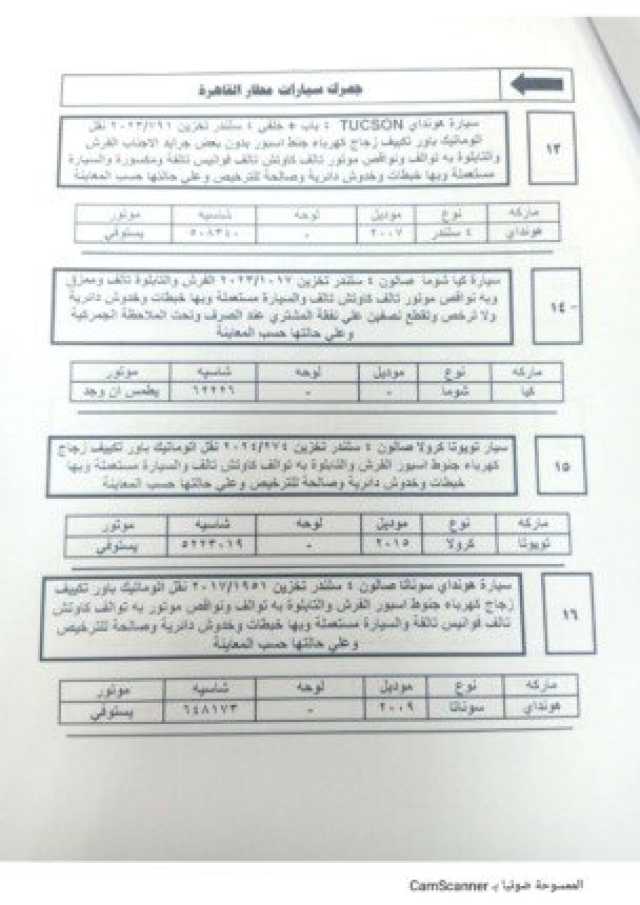 جمرك سيارات مطار القاهرة
١٣
سيارة هونداي TUCSON ٤ باب + خلفي ٤ سلندر تخزين ٢٠٢٣/٧٩١ نقل
اتوماتيك باور تكييف زجاج كهرباء جنط اسبور بدون بعض جرايد الاجناب الفرش
والتابلوة به توالف ونواقص موتور تالف كاوتش تالف فوانيس تالفة ومكسورة والسيارة
مستعملة وبها خبطات وخدوش دائرية وصالحة للترخيص وعلي حالتها حسب المعاينة
ماركه نوع موديل لوحه شاسيه موتور
هونداي ٤ سلندر ٢٠٠٧ - ٥٠٨٣٤٠ يستوفي
١٤ -
سيارة كيا شوما صالون ٤ سلندر تخزين ٢٠٢٣/١٠١٧ الفرش والتابلوة تالف وممزق
وبه نواقص موتور تالف كاوتش تالف والسيارة مستعملة وبها خبطات وخدوش دائرية
ولا ترخص وتقطع نصفين علي نفقة المشتري عند الصرف وتحت الملاحظة الجمركية
وعلي حالتها حسب المعاينة
ماركه نوع موديل لوحه شاسيه موتور
كيا شوما - - يطمس ان وجد
١٥
سيار تويوتا كرولا صالون ٤ سلندر تخزين ٢٠٢٤/٢٧٤ نقل اتوماتيك باور تكييف زجاج
كهرباء جنوط اسبور الفرش والتابلوة به توالف كاوتش تالف والسيارة مستعملة وبها
خبطات وخدوش دائرية وصالحة للترخيص وعلي حالتها حسب المعاينة
ماركه نوع موديل لوحه شاسيه موتور
تويوتا كرولا ٢٠١٥ - ٥٢٢٣٠١٩ يستوفي
١٦
سيارة هونداي سوناتا صالون ٤ سلندر تخزين ٢٠١٧/١٩٥١ نقل اتوماتيك باور تكييف
زجاج كهرباء جنوط اسبور الفرش والتابلوة به توالف ونواقص موتور به توالف كاوتش
تالف فوانيس تالفة والسيارة مستعملة وبها خبطات وخدوش دائرية وصالحة للترخيص
وعلي حالتها حسب المعاينة
ماركه نوع موديل لوحه شاسيه موتور
هونداي سوناتا ٢٠٠٩ - ٦٤٨١٧٣ يستوفي
الممسوحة ضوئيا بـ CamScanner